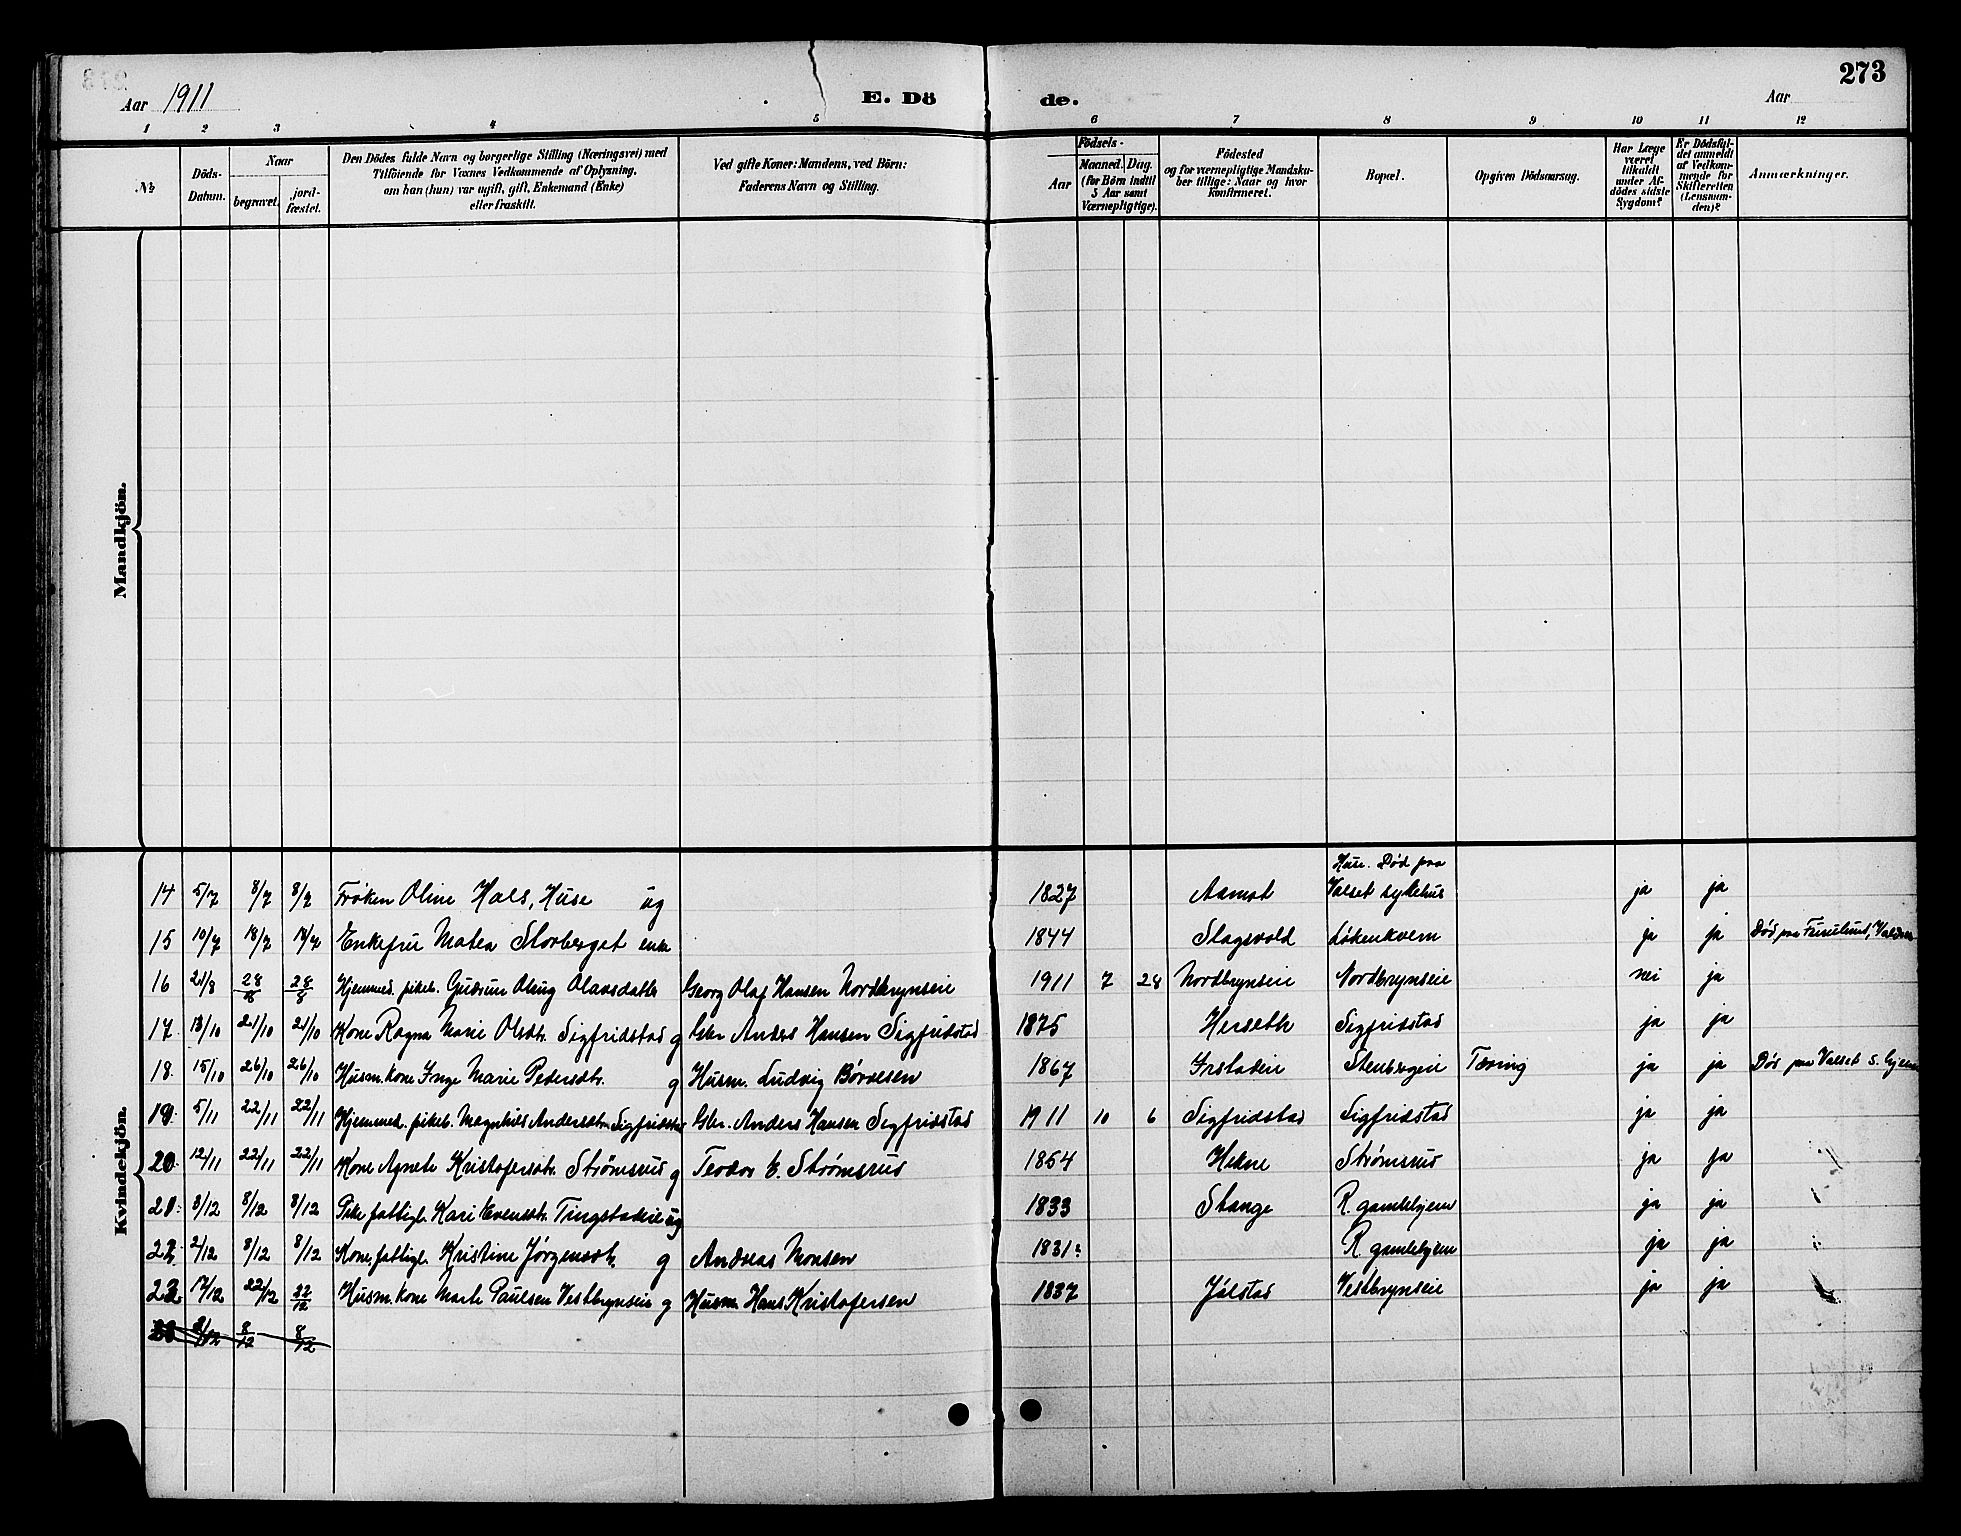 Aar 1911
E. Dö de.
Aar
273
1 2 3 4 5 6 7 8 9 10 11 12
№
Döds-Datum.
Naar
begravet.
jord-fæstet.
Den Dödes fulde Navn og borgerlige Stilling (Næringsvei) med
Tilföiende for Voxnes Vedkommende af Oplysning,
om han (hun) var ugift, gift, Enkemand (Enke)
eller fraskilt.
Ved gifte Koner: Mandens, ved Börn:
Faderens Navn og Stilling.
Födsels-
Aar
Maaned. Dag.
(for Börn indtil
5 Aar samt
Værnepligtige).
Födested
og for værnepligtige Mandsku-
ber tillige: Naar og hvor
konfirmeret.
Bopæl.
Opgiven Dödsaarsag.
Har Læge
været
tilkaldt
under Af-
dödes sidste
Sygdom?
Er Dödsfal-
det anmeldt
af Vedkom-
mende for
Skifteretten
(Lensman-
den)?
Anmærkninger.
Mandkjön.
Kvindekjön.
14 5/7 8/7 8/7 Frøken Oline Hals, Huse ug 1827 Aamot Huse. Død paa Valset sykehus ja ja
15 10/7 18/7 18/7 Enkefru Matea Storberget enke 1844 Slagsvold Løkenkvern ja ja Død paa
16 21/8 28/8 28/8 Hjemmed. pikeb. Gudrun Olaug Olavsdatter Georg Olaf Hansen Nordbrynseie 1911 7 28 Nordbrynseie Nordbrynseie nei ja
17 13/10 21/10 21/10 Kone Ragna Marie Olsdtr. Sigfridstad g Gbr. Anders Hansen Sigfridstad 1875 Herseth Sigfridstad ja ja
18. 15/10 26/10 26/10 Husm. kone Inge Marie Pedersdtr. g Husm. Ludvig Børresen 1867 Grstadeie Stenbergeie Tæring ja ja Død paa Valset s. hjem
19. 5/11 22/11 22/11 Hjemmed. pikeb. Magnhild Andersdtr. Sigfridstad Gbr. Anders Hansen Sigfridstad 1911 10 6 Sigfridstad Sigfridstad ja ja
20. 12/11 22/11 22/11 Kone Agnete Kristofersdtr. Strømsrud g Teodor E. Strømsrud 1854 Hekne Strømsrud ja ja
21. 3/12 8/12 8/12 Pike fattigl. Kari Evensdtr. Tingstadeie ug 1833 Stange R. gamlehjem ja ja
22. 2/12 8/12 8/12 Kone, fattigl. Kristine Jørgensdtr. g Andreas Monsen 1831 R. gamlehjem ja ja
23 17/12 22/12 22/12 Husm. kone Marte Paulsen Vestbrynseie g Husm. Hans Kristofersen 1837 Jølstad Vestbrynseie ja ja
2/12 8/12 8/12